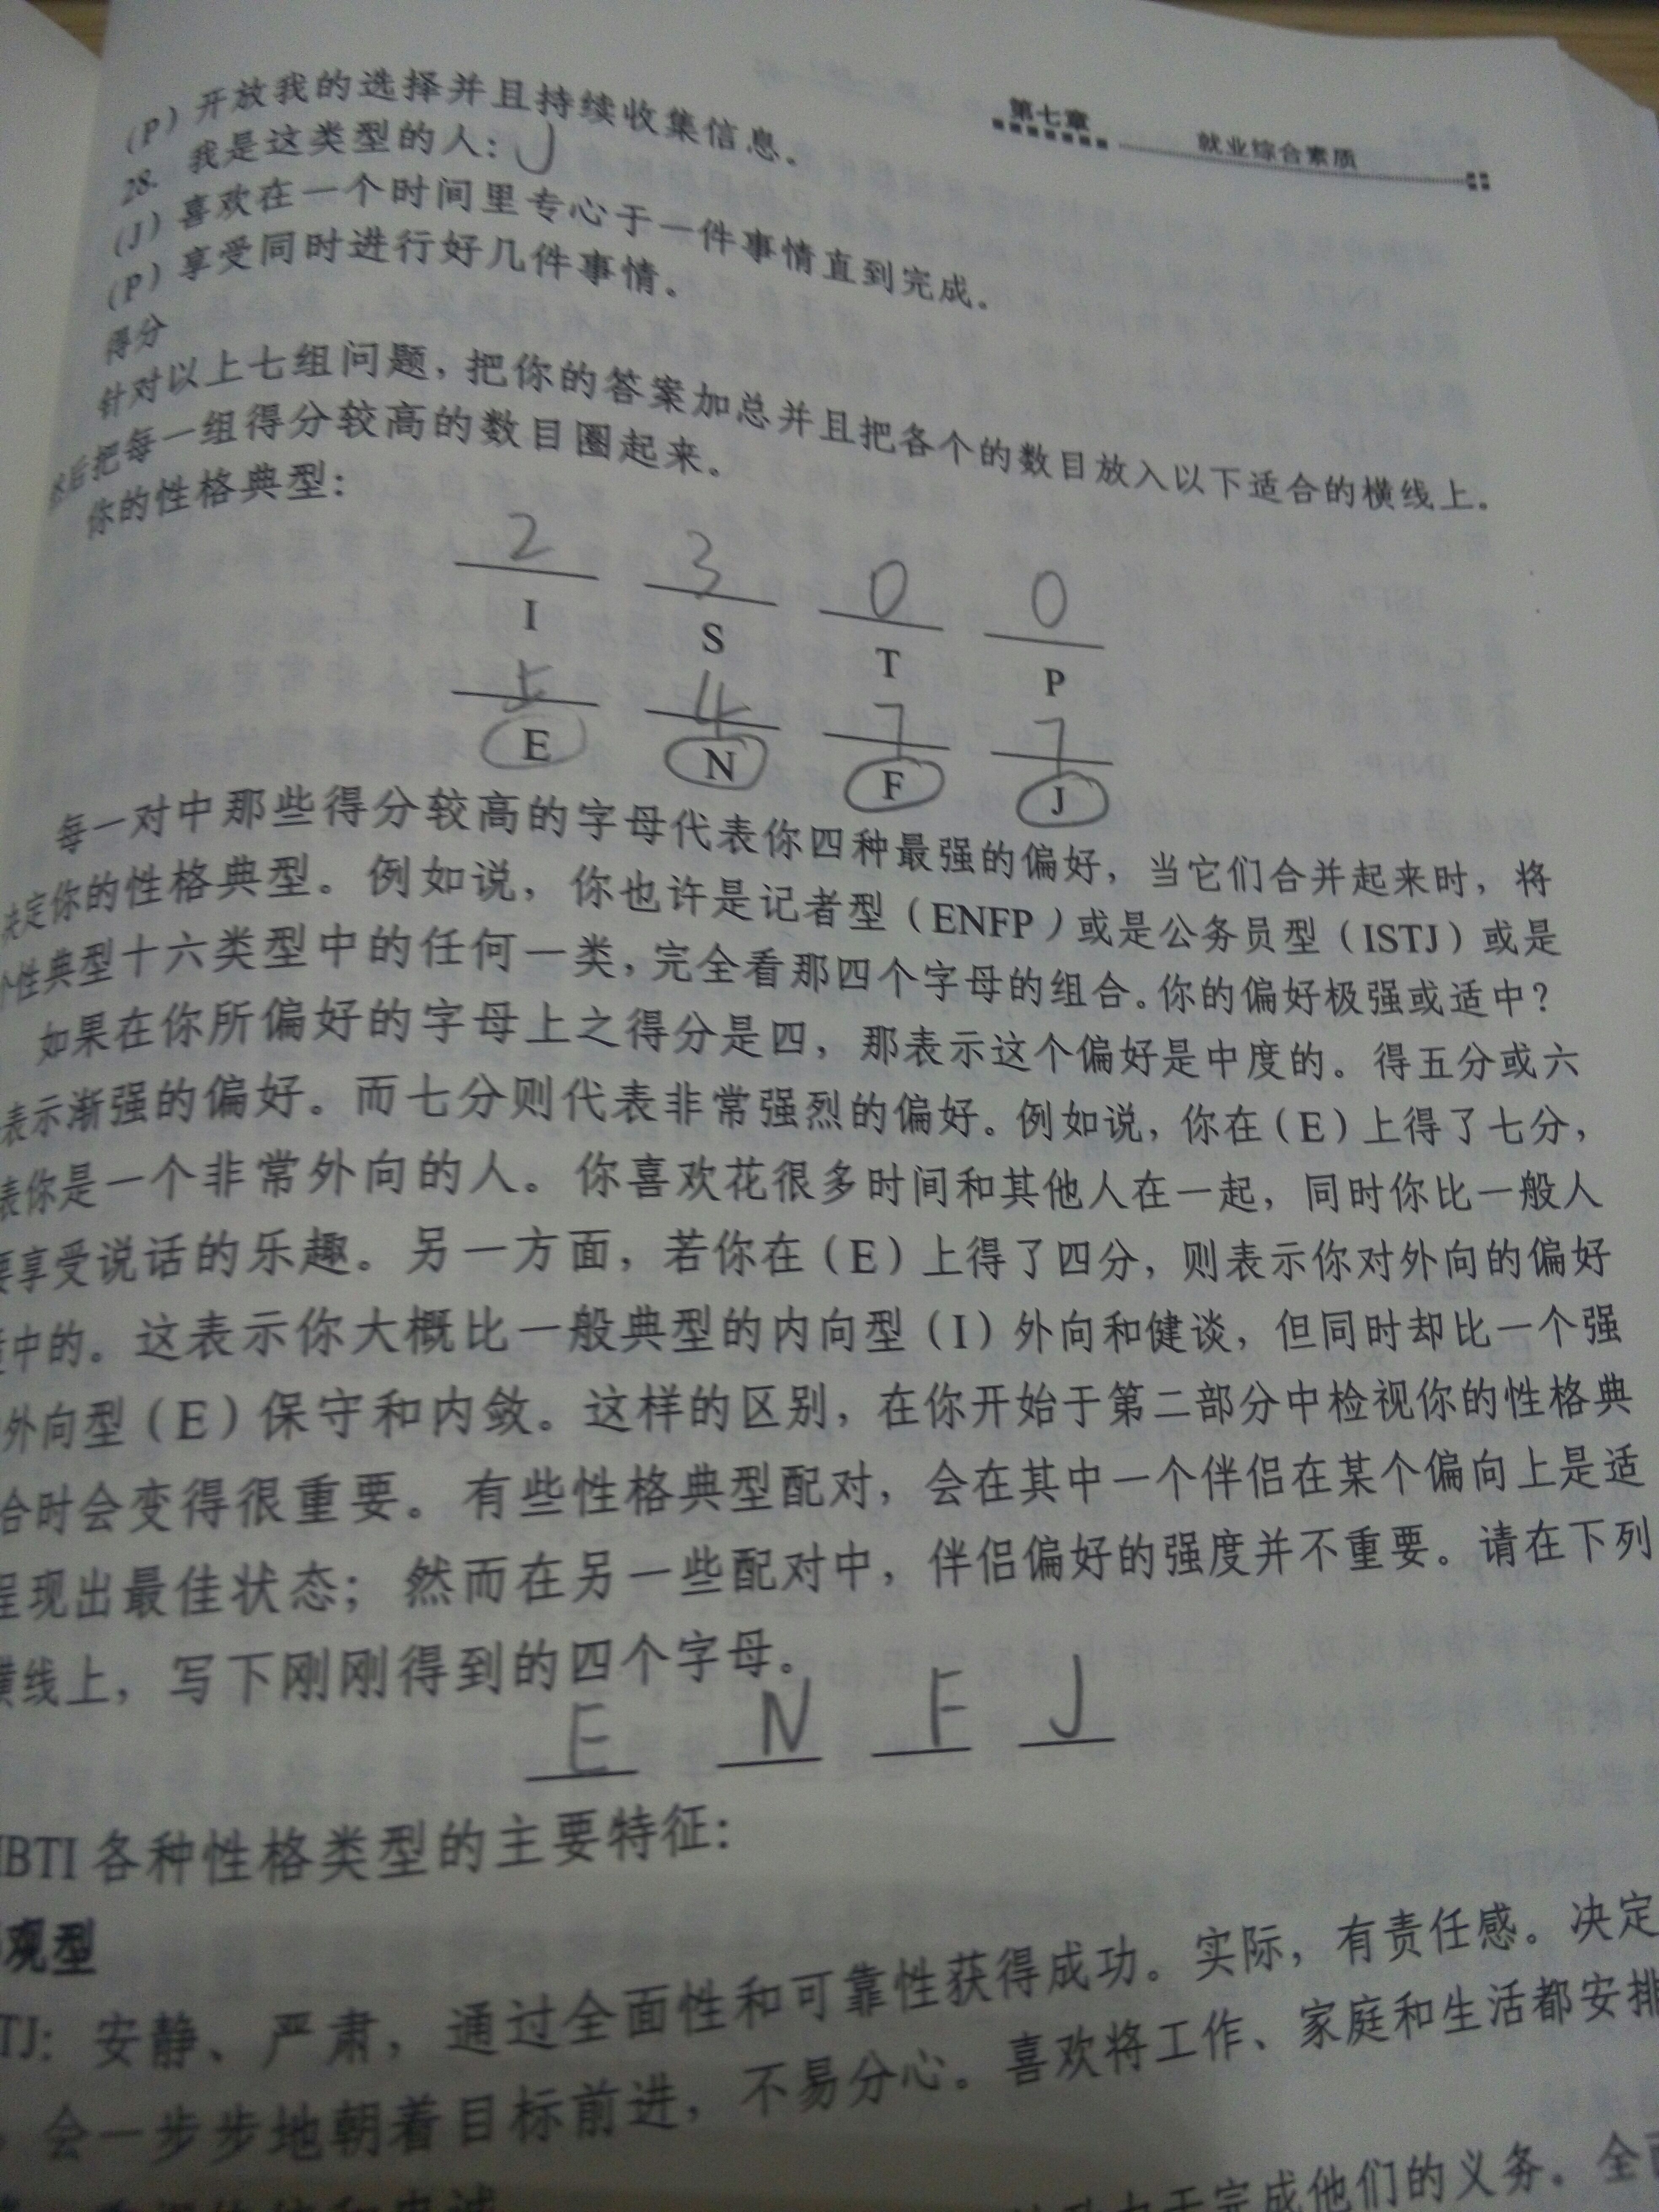 第七章 就业综合素质
(P) 开放我的选择并且持续收集信息。
28. 我是这类型的人: J
(J) 喜欢在一个时间里专心于一件事情直到完成。
(P) 享受同时进行好几件事情。
得分
针对以上七组问题,把你的答案加总并且把各个的数目放入以下适合的横线上。
后把每一组得分较高的数目圈起来。
你的性格典型:
2 3 0 0
I S T P
5 4 7 7
E N F J
每一对中那些得分较高的字母代表你四种最强的偏好,当它们合并起来时,将
决定你的性格典型。例如说,你也许是记者型(ENFP)或是公务员型(ISTJ)或是
个性典型十六类型中的任何一类,完全看那四个字母的组合。你的偏好极强或适中?
如果在你所偏好的字母上之得分是四,那表示这个偏好是中度的。得五分或六
表示渐强的偏好。而七分则代表非常强烈的偏好。例如说,你在(E)上得了七分,
表你是一个非常外向的人。你喜欢花很多时间和其他人在一起,同时你比一般人
要享受说话的乐趣。另一方面,若你在(E)上得了四分,则表示你对外向的偏好
中的。这表示你大概比一般典型的内向型(I)外向和健谈,但同时却比一个强
外向型(E)保守和内敛。这样的区别,在你开始于第二部分中检视你的性格典
合时会变得很重要。有些性格典型配对,会在其中一个伴侣在某个偏向上是适
呈现出最佳状态;然而在另一些配对中,伴侣偏好的强度并不重要。请在下列
横线上,写下刚刚得到的四个字母。
E N F J
MBTI 各种性格类型的主要特征:
观型
TJ: 安静、严肃,通过全面性和可靠性获得成功。实际,有责任感。决定
会一步步地朝着目标前进,不易分心。喜欢将工作、家庭和生活都安排
于完成他们的义务。全